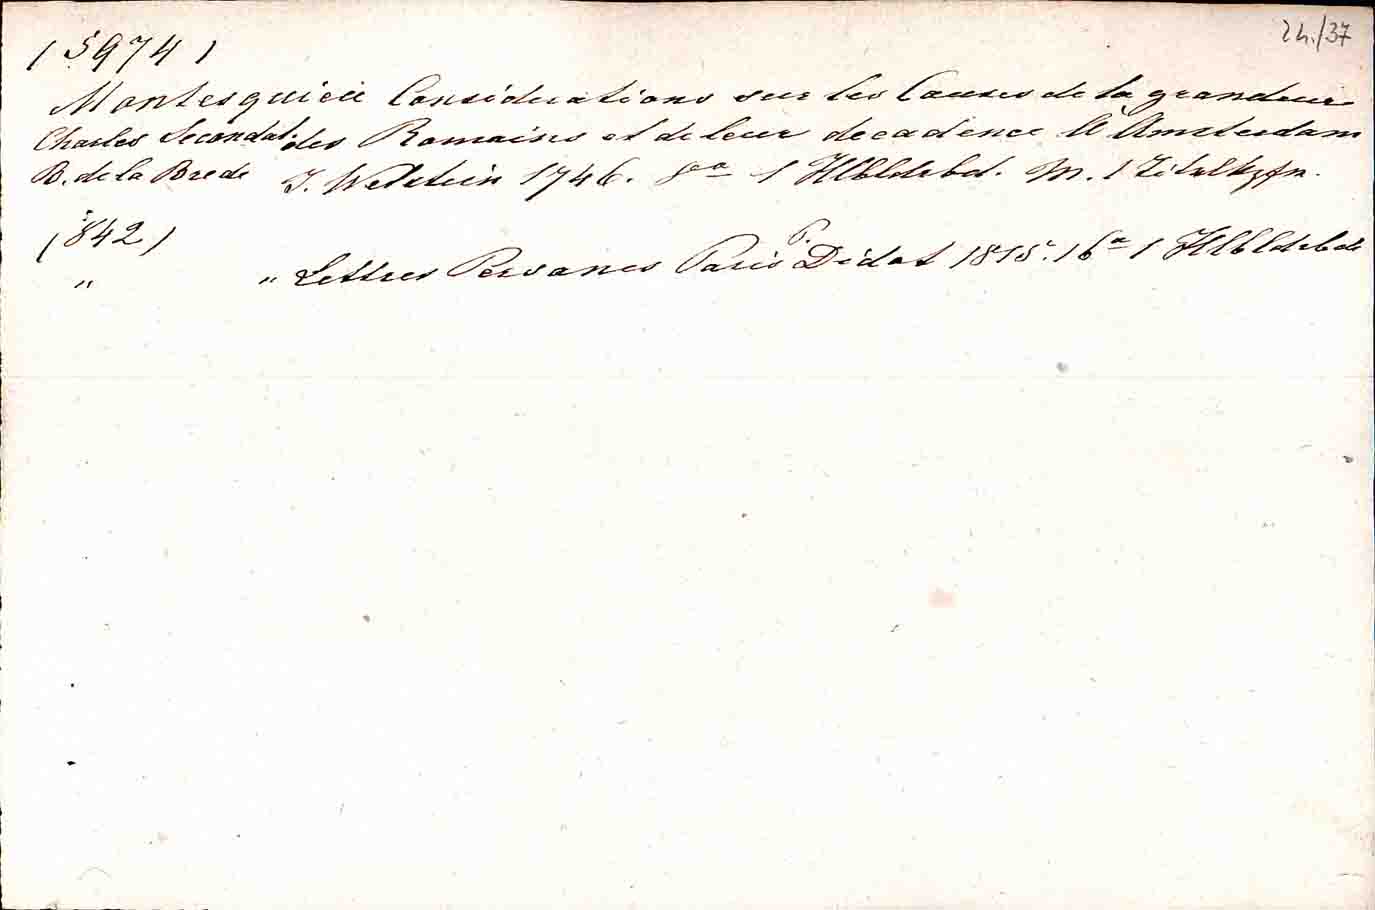 24./37
(5974)
Montesquieu Considerations sur les Causes de la grandeur
Charles Secondat. des Romains et de leur decadence A Amsterdam
B. de la Brede J. Wetstein 1746. 8o 1 Hlbldrbd. M. 1 Titelkpfr.
(842)
" " Lettres Persanes Paris P. Didot 1815. 16o 1 Hlbldrbd